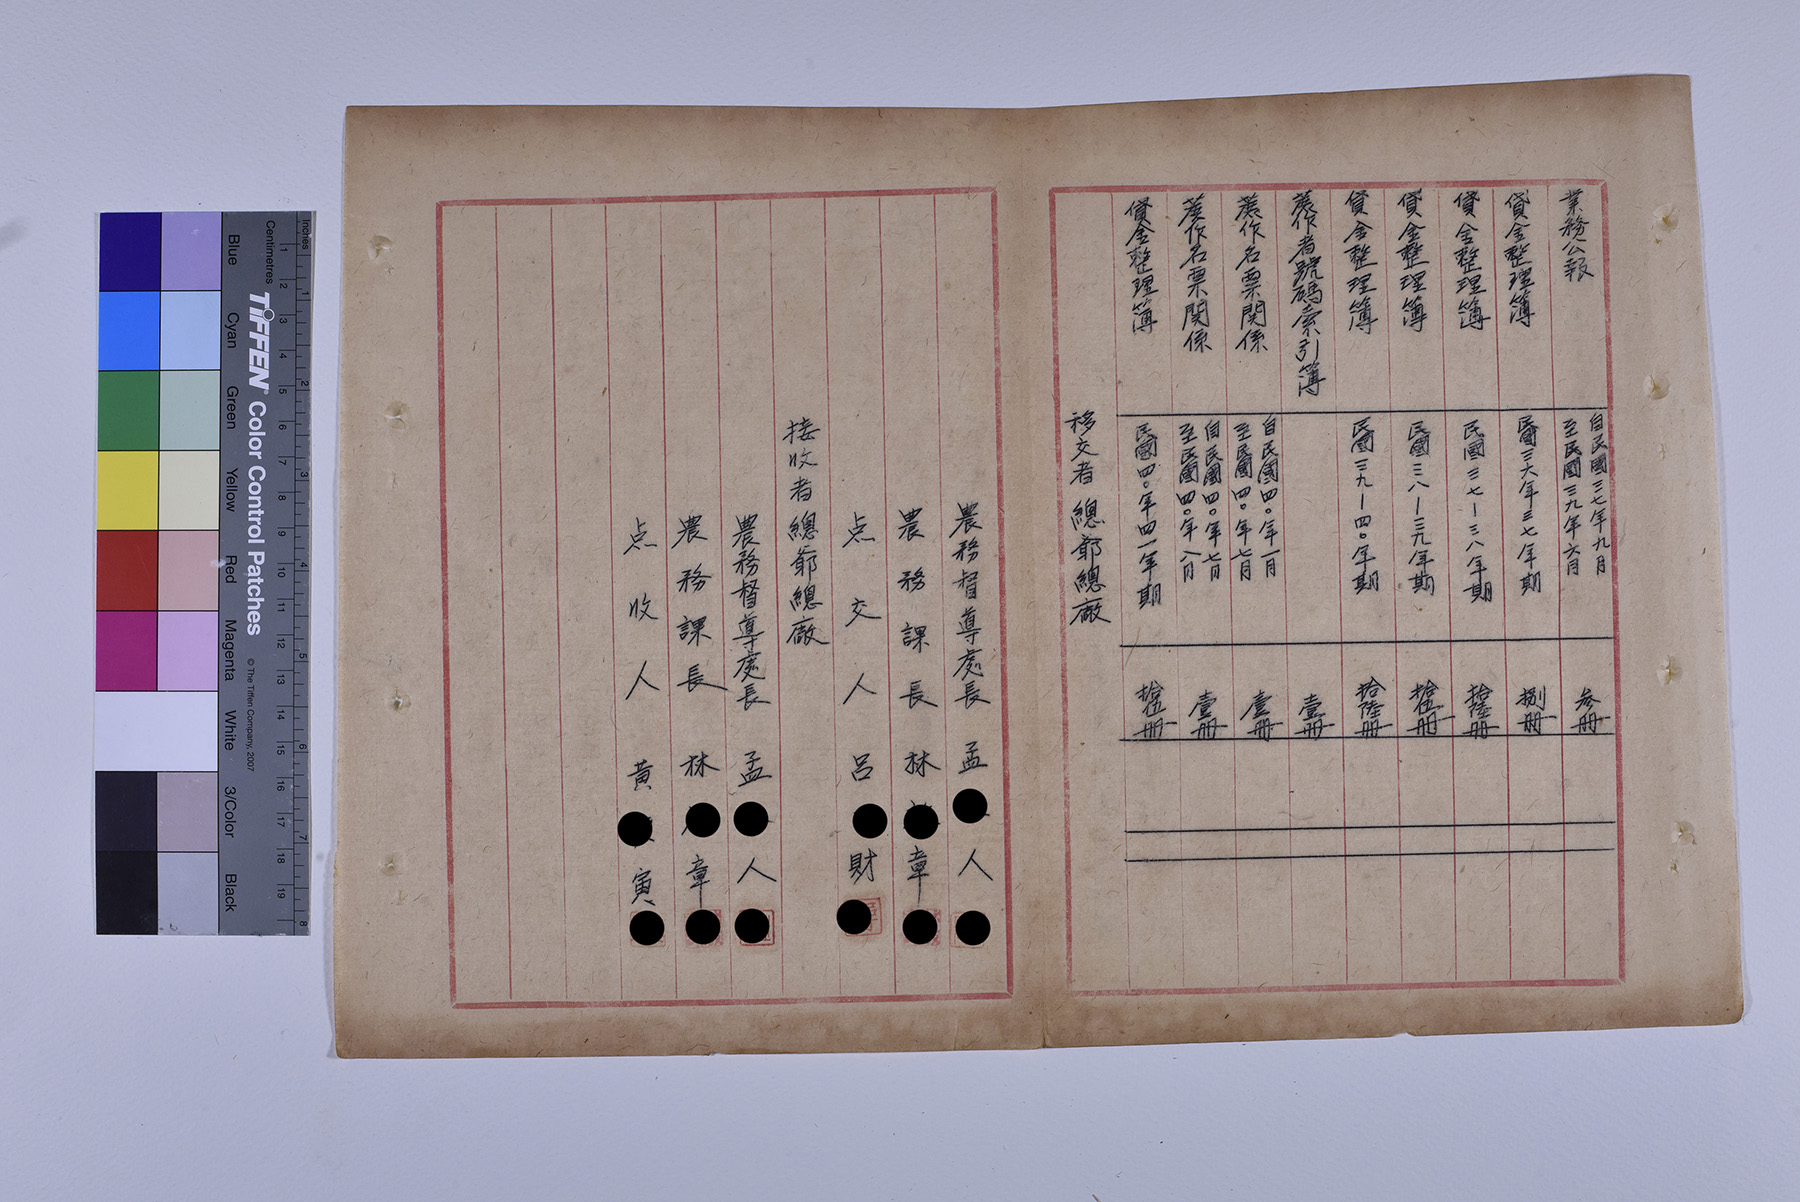 業務公報 自民國三七年九月 至民國三九年六月 參册
貸金整理簿 民國三六年三七年期 捌册
貸金整理簿 民國三七—三八年期 拾陸册
貸金整理簿 民國三八—三九年期 拾伍册
貸金整理簿 民國三九—四〇年期 拾陸册
蔗作者號碼索引簿 壹册
蔗作名票関係 自民國四〇年一月 至民國四〇年七月 壹册
蔗作名票関係 自民國四〇年七月 至民國四〇年八月 壹册
貸金整理簿 民國四〇年四一年期 拾伍册
移交者 總爺總廠
農務督導處長 孟 人
農務課長 林 章
点交人 呂 財
接收者 總爺總廠
農務督導處長 孟 人
農務課長 林 章
点收人 黃 寅
Inches
Centimetres
TIFFEN® Color Control Patches © The Tiffen Company, 2007
Blue Cyan Green Yellow Red Magenta White 3/Color Black
1 2 3 4 5 6 7 8
1 2 3 4 5 6 7 8 9 10 11 12 13 14 15 16 17 18 19